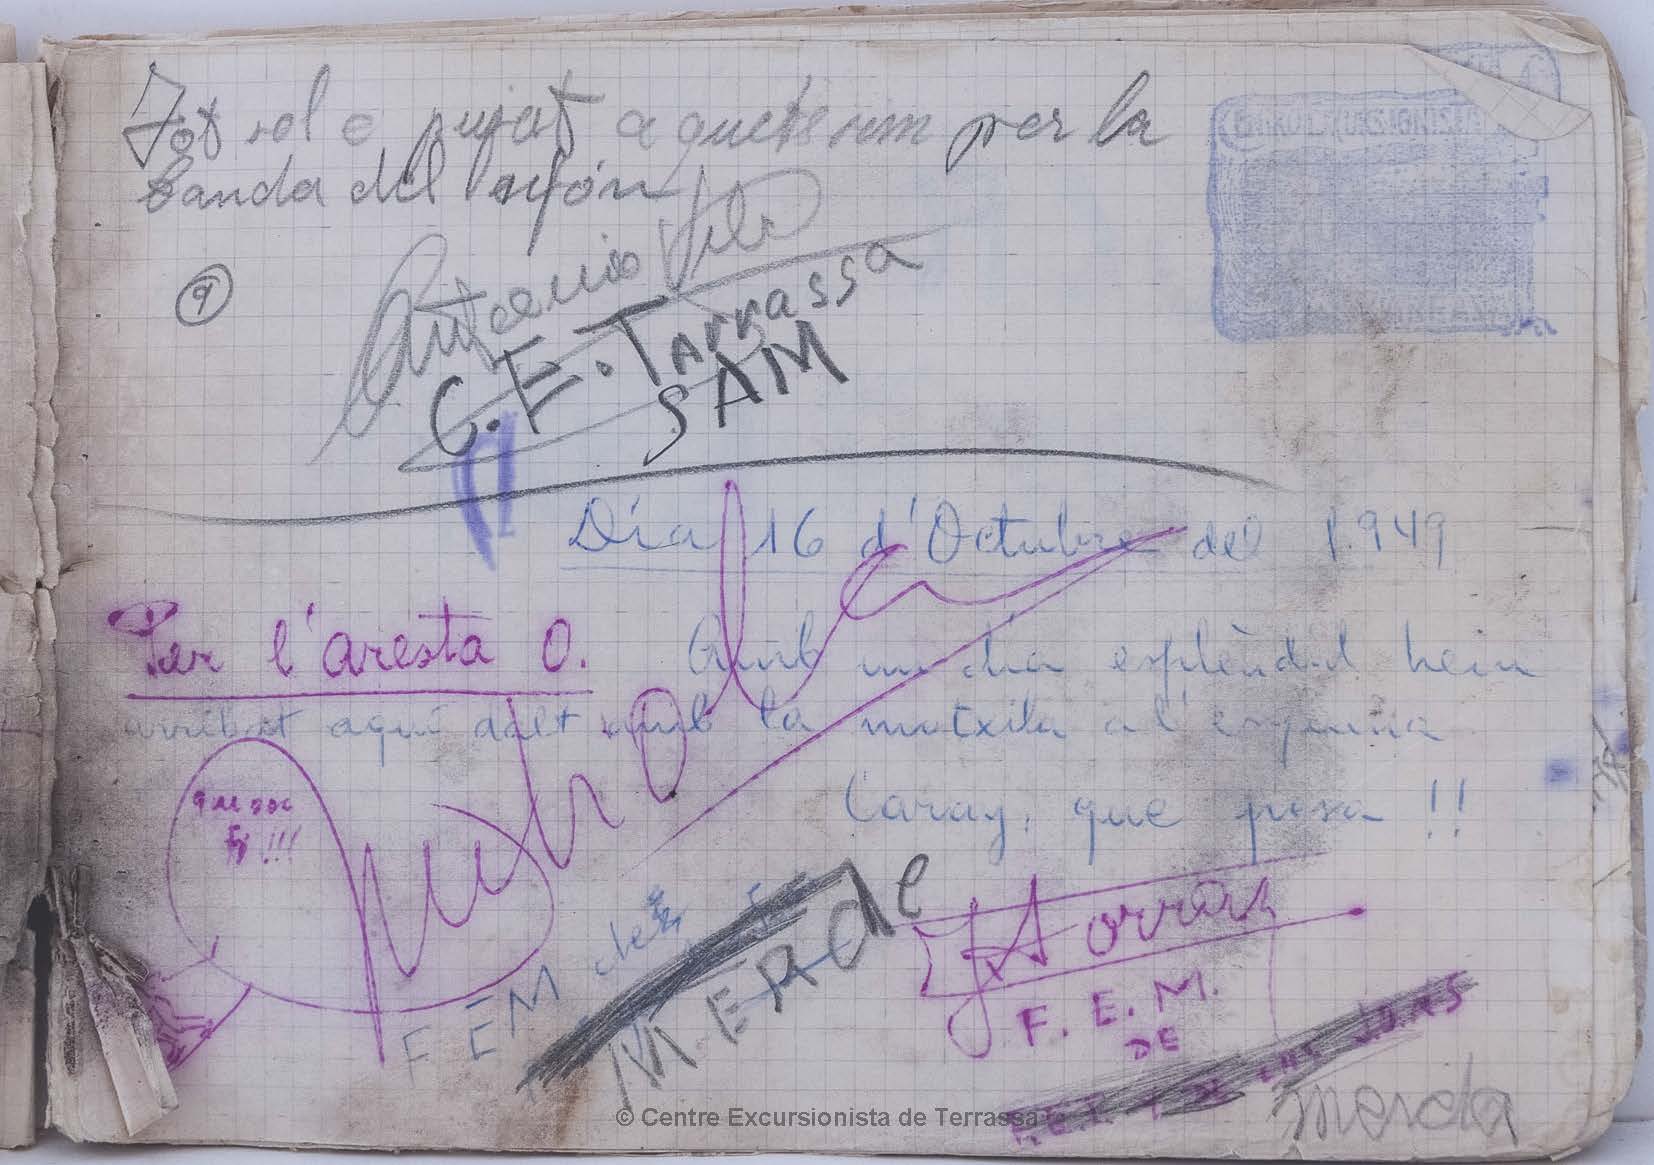 Tot sol e pujat aquets sim per la
banda del sifón
Antonio Vila
C. E. Tarrassa
SAM
9
Día 16 d'Octubre del 1.949
Per l'aresta O.
Amb un dia esplèndid hem
arribat aquí dalt amb la mutxila a l'esquena
Caray, que pesa !!
que soc
jo !!!
F E M de
MERde
F. E. M.
DE
DE LAS JONS
merda
© Centre Excursionista de Terrassa